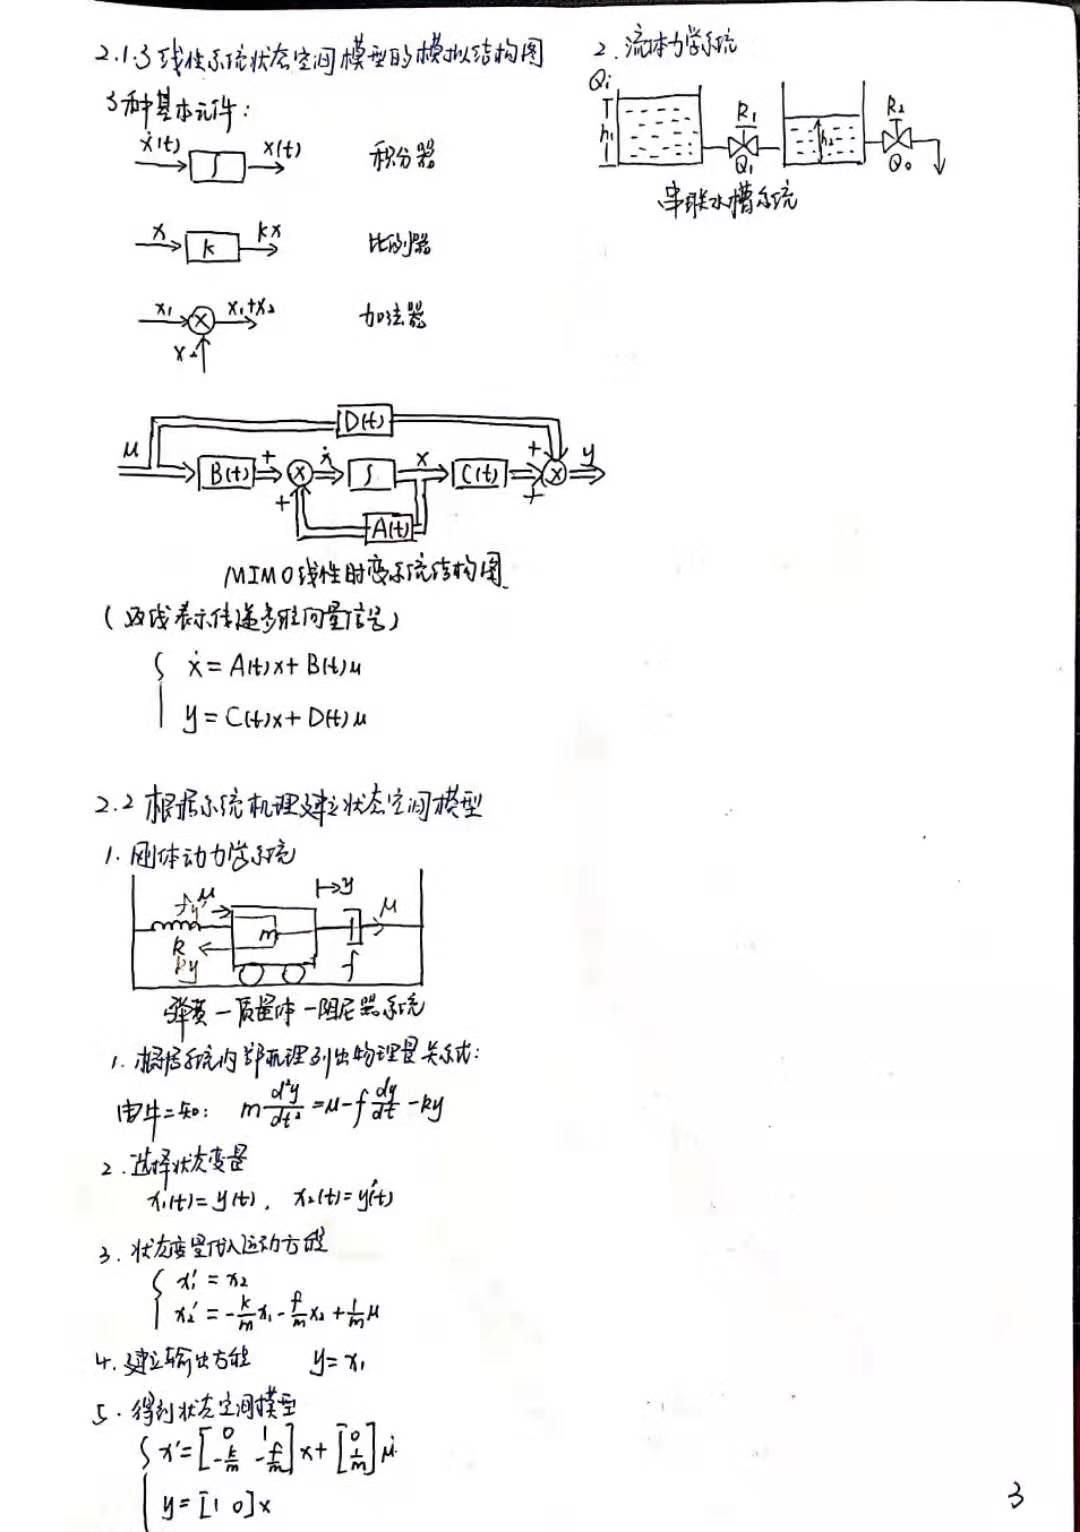 2.1.3 线性系统状态空间模型的模拟结构图
3种基本元件:
ẋ(t) ∫ x(t) 积分器
x k kx 比例器
x₁ × x₁+x₂ 加法器
x₂
D(t)
μ B(t) + × ẋ ∫ x C(t) + × y
+ A(t) +
MIMO线性时变系统结构图
(双线表示传递多维向量信号)
ẋ = A(t)x + B(t)μ
y = C(t)x + D(t)μ
2.2 根据系统机理建立状态空间模型
1. 刚体动力学系统
fy' μ y μ
k m f
ky
弹簧—质量体—阻尼器系统
1. 根据系统内部机理列出物理量关系式:
由牛二知: m d²y/dt² = μ - f dy/dt - ky
2. 选择状态变量
x₁(t) = y(t), x₂(t) = y'(t)
3. 状态变量代入运动方程
x₁' = x₂
x₂' = -k/m x₁ - f/m x₂ + 1/m μ
4. 建立输出方程 y = x₁
5. 得到状态空间模型
x' = [0 1; -k/m -f/m] x + [0; 1/m] μ
y = [1 0] x
2. 流体力学系统
Qi
h₁ R₁ Q₁ h₂ R₂ Q₀
串联水槽系统
3